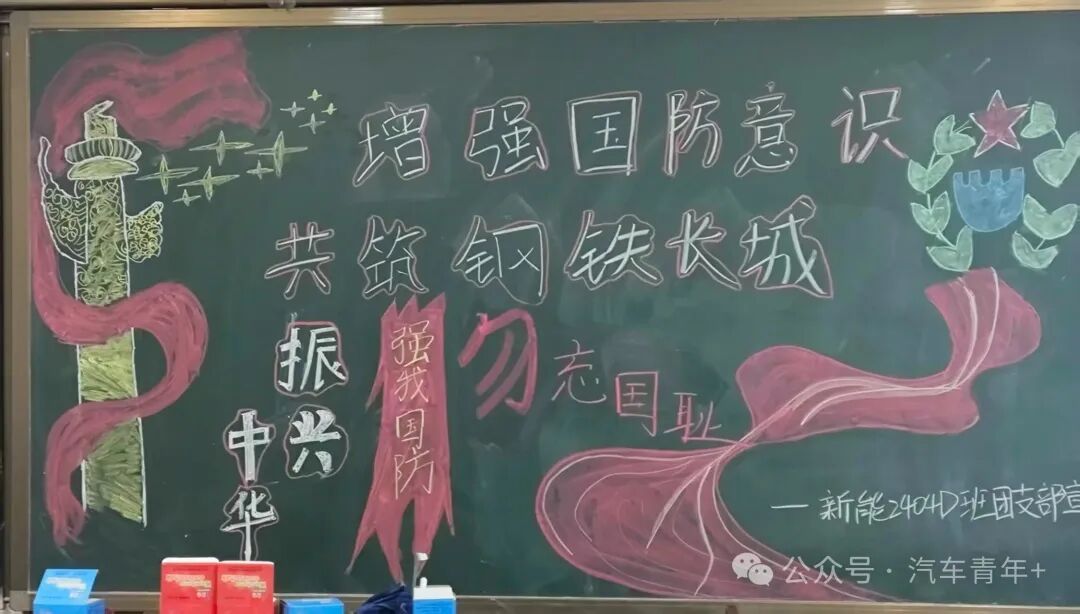 增强国防意识
共筑钢铁长城
振兴
中华
强我国防
勿忘国耻
—新能2404D班团支部宣
公众号·汽车青年+